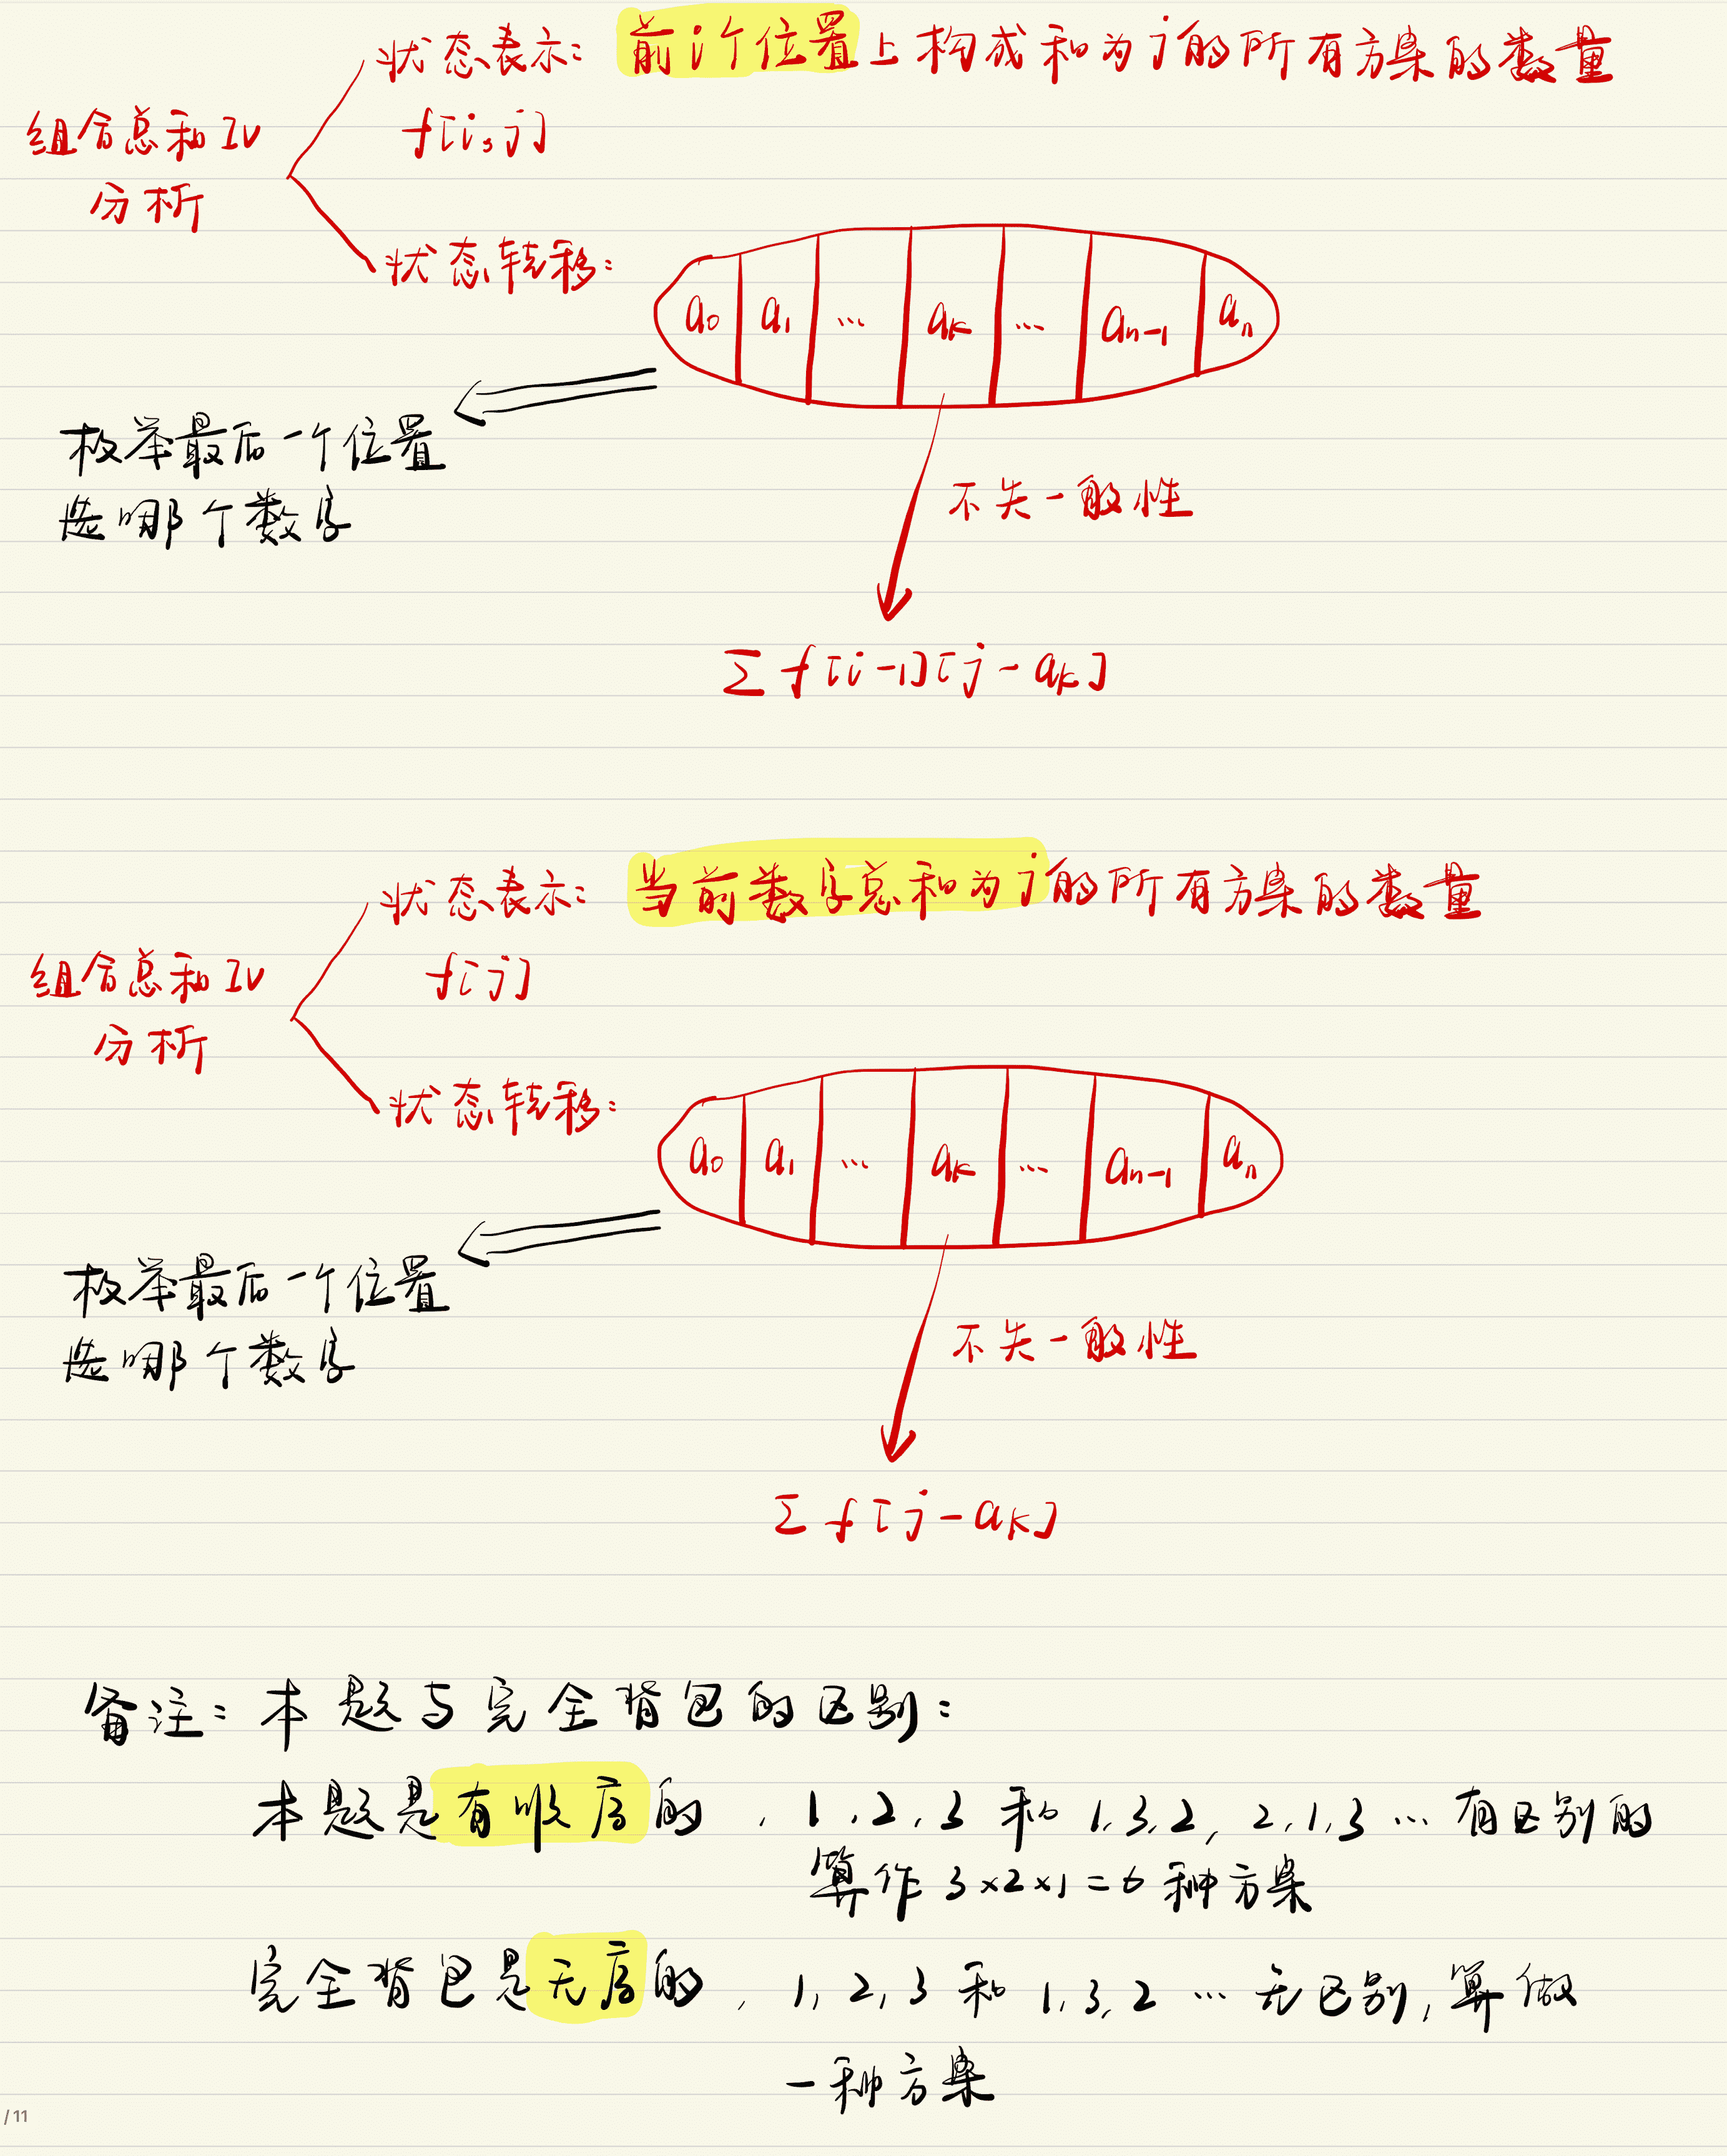 状态表示: 前i个位置上构成和为j的所有方案的数量
组合总和IV
f[i,j]
分析
状态转移:
a0 a1 ... ak ... an-1 an
枚举最后一个位置
选哪个数字
不失一般性
Σf[i-1][j-ak]
状态表示: 当前数字总和为j的所有方案的数量
组合总和IV
f[j]
分析
状态转移:
a0 a1 ... ak ... an-1 an
枚举最后一个位置
选哪个数字
不失一般性
Σf[j-ak]
备注: 本题与完全背包的区别:
本题是有顺序的, 1,2,3 和 1,3,2, 2,1,3 ... 有区别的
算作 3×2×1=6 种方案
完全背包是无序的, 1,2,3 和 1,3,2 ... 无区别, 算做
一种方案
/ 11